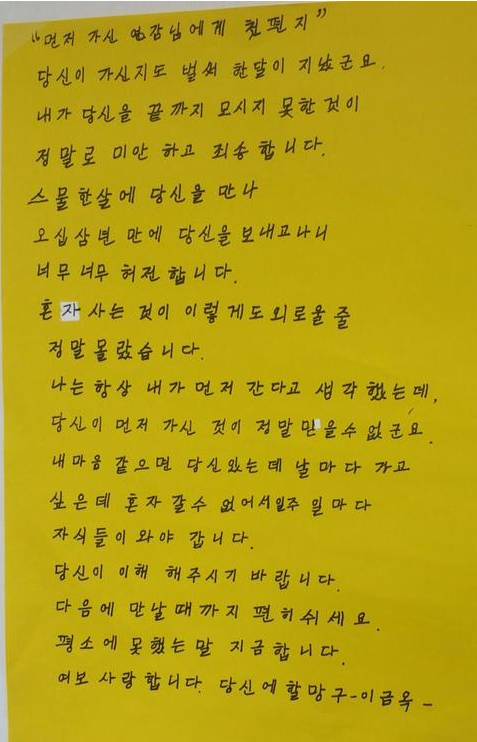 "먼저 가신 영감님에게 첫편지"
당신이 가신지도 벌써 한달이 지났군요.
내가 당신을 끝까지 모시지 못한것이
정말로 미안하고 죄송합니다.
스물한살에 당신을 만나
오십삼년 만에 당신을 보내고나니
너무너무 허전합니다.
혼자 사는 것이 이렇게도 외로울 줄
정말 몰랐습니다.
나는 항상 내가 먼저 간다고 생각했는데,
당신이 먼저 가신 것이 정말 믿을수 없군요.
내마음 같으면 당신있는데 날마다 가고
싶은데 혼자 갈수 없어서 일주일마다
자식들이 와야 갑니다.
당신이 이해 해주시기 바랍니다.
다음에 만날때까지 편히쉬세요.
평소에 못했는 말 지금합니다.
여보 사랑합니다. 당신에 할망구-이금옥-